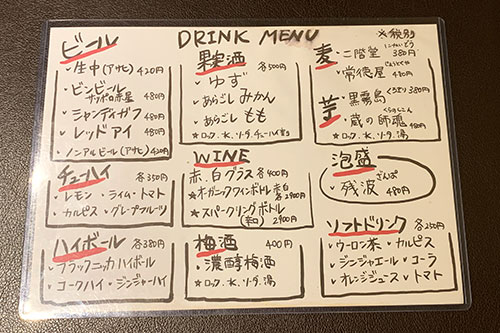 DRINK MENU
※税別
ビール
・生中(アサヒ) 420円
・ビンビール
サッポロ赤星 480円
・シャンディガフ 480円
・レッドアイ 480円
・ノンアルビール(アサヒ) 420円
果実酒 各500円
・ゆず
・あらごし みかん
・あらごし もも
★ロック、水、ソーダ、チューハイ割り
麦
・二階堂 380円
にかいどう
・常徳屋 430円
じょうとくや
芋
・黒霧島 380円
くろきり
・蔵の師魂 480円
くらのしこん
★ロック、水、ソーダ、湯
チューハイ 各350円
・レモン ・ライム・トマト
・カルピス ・グレープフルーツ
WINE
赤、白グラス 各400円
★オーガニックワインボトル 赤白 各2900円
★スパークリングボトル
(辛口) 2900円
泡盛
・残波 480円
ざんぱ
ハイボール 各380円
・ブラックニッカハイボール
・コークハイ ・ジンジャーハイ
梅酒 400円
・濃醇梅酒
★ロック、水、ソーダ、湯
ソフトドリンク 各250円
・ウーロン茶 ・カルピス
・ジンジャエール ・コーラ
・オレンジジュース ・トマト